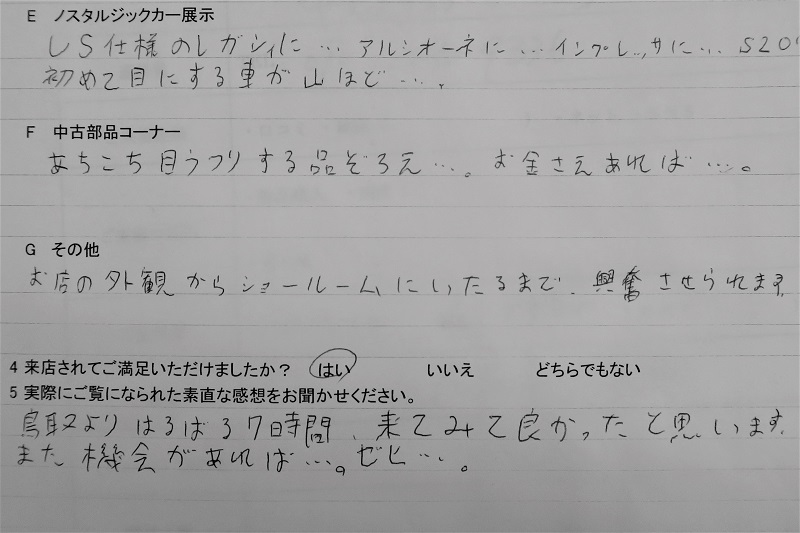 E ノスタルジックカー展示
LS仕様のレガシィに…アルシオーネに…インプレッサに…S20
初めて目にする車が山ほど…、
F 中古部品コーナー
あちこち目うつりする品ぞろえ…。お金さえあれば…。
G その他
お店の外観からショールームにいたるまで、興奮させられます
4 来店されてご満足いただけましたか？ はい いいえ どちらでもない
5 実際にご覧になられた素直な感想をお聞かせください。
鳥取よりはるばる7時間、来てみて良かったと思います
また機会があれば…。ゼヒ…。